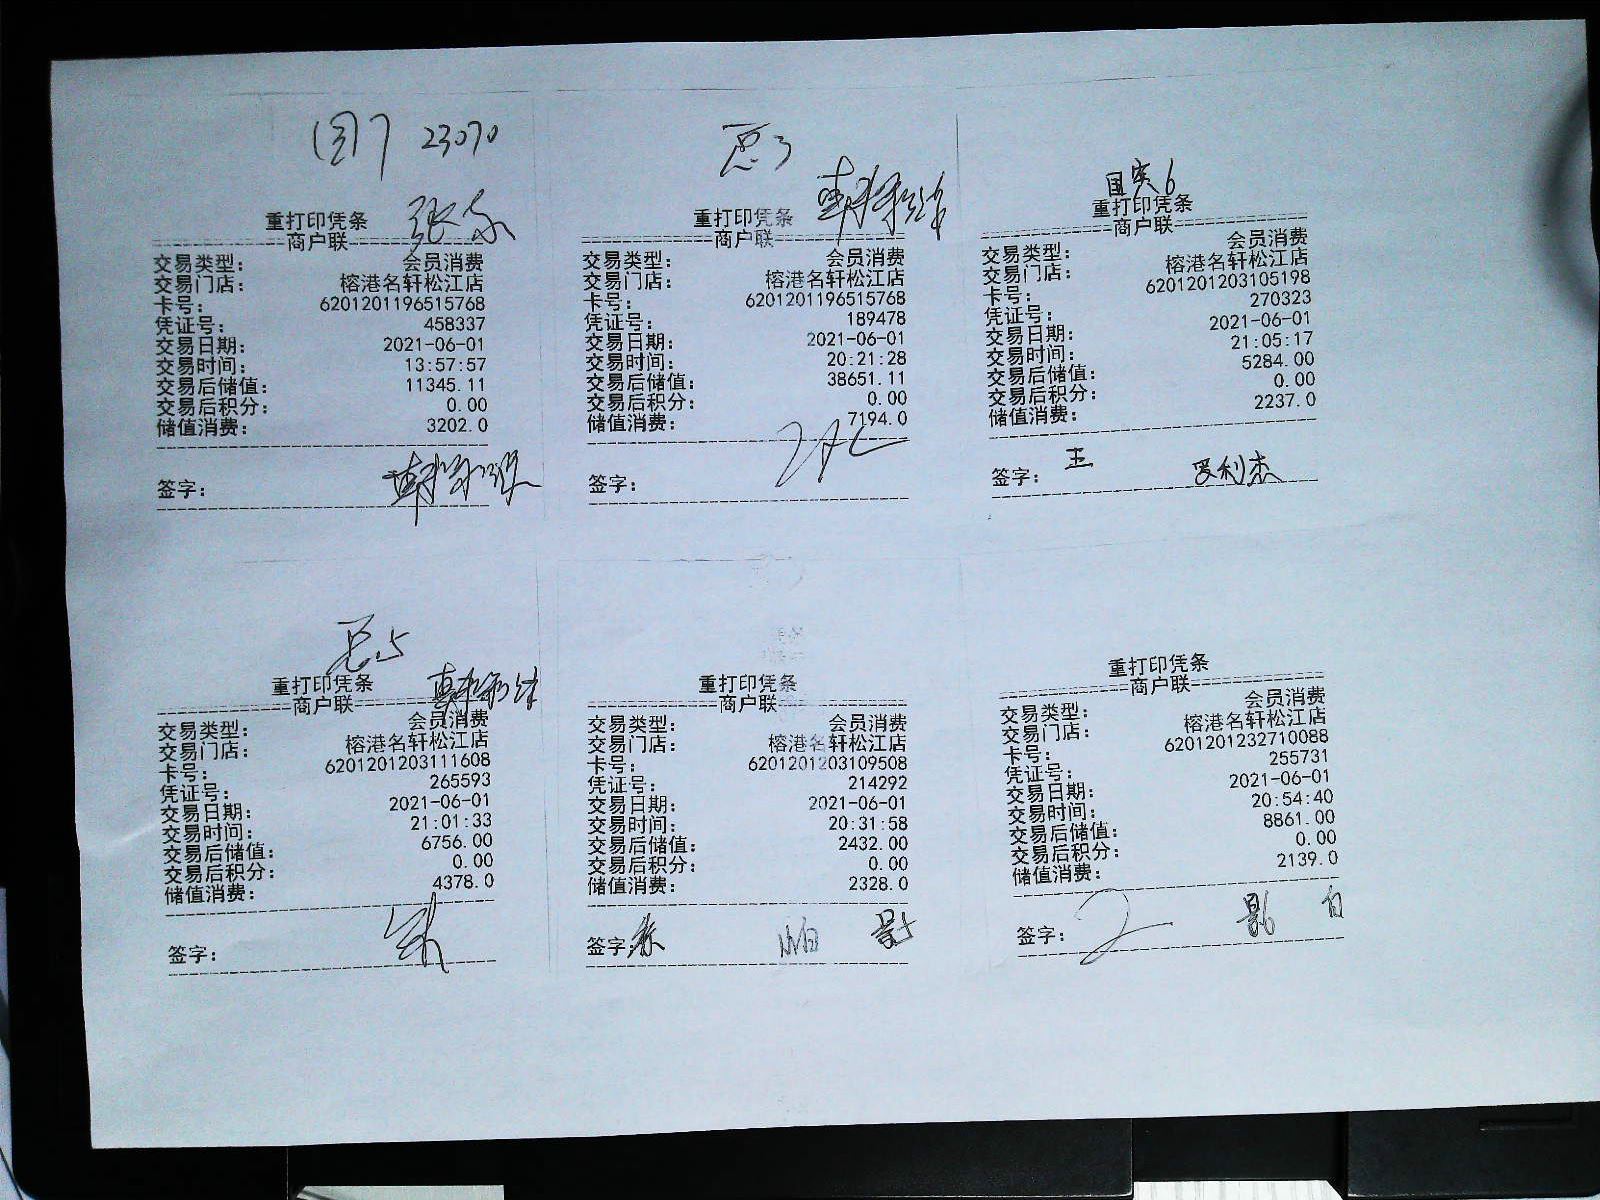 23070
重打印凭条
商户联
交易类型: 会员消费
交易门店: 榕港名轩松江店
卡号: 6201201196515768
凭证号: 458337
交易日期: 2021-06-01
交易时间: 13:57:57
交易后储值: 11345.11
交易后积分: 0.00
储值消费: 3202.0
签字:
重打印凭条
商户联
交易类型: 会员消费
交易门店: 榕港名轩松江店
卡号: 6201201196515768
凭证号: 189478
交易日期: 2021-06-01
交易时间: 20:21:28
交易后储值: 38651.11
交易后积分: 0.00
储值消费: 7194.0
签字:
重打印凭条
商户联
交易类型: 会员消费
交易门店: 榕港名轩松江店
卡号: 6201201203105198
凭证号: 270323
交易日期: 2021-06-01
交易时间: 21:05:17
交易后储值: 5284.00
交易后积分: 0.00
储值消费: 2237.0
签字: 王 罗利杰
重打印凭条
商户联
交易类型: 会员消费
交易门店: 榕港名轩松江店
卡号: 6201201203111608
凭证号: 265593
交易日期: 2021-06-01
交易时间: 21:01:33
交易后储值: 6756.00
交易后积分: 0.00
储值消费: 4378.0
签字:
重打印凭条
商户联
交易类型: 会员消费
交易门店: 榕港名轩松江店
卡号: 6201201203109508
凭证号: 214292
交易日期: 2021-06-01
交易时间: 20:31:58
交易后储值: 2432.00
交易后积分: 0.00
储值消费: 2328.0
签字:
重打印凭条
商户联
交易类型: 会员消费
交易门店: 榕港名轩松江店
卡号: 6201201232710088
凭证号: 255731
交易日期: 2021-06-01
交易时间: 20:54:40
交易后储值: 8861.00
交易后积分: 0.00
储值消费: 2139.0
签字: